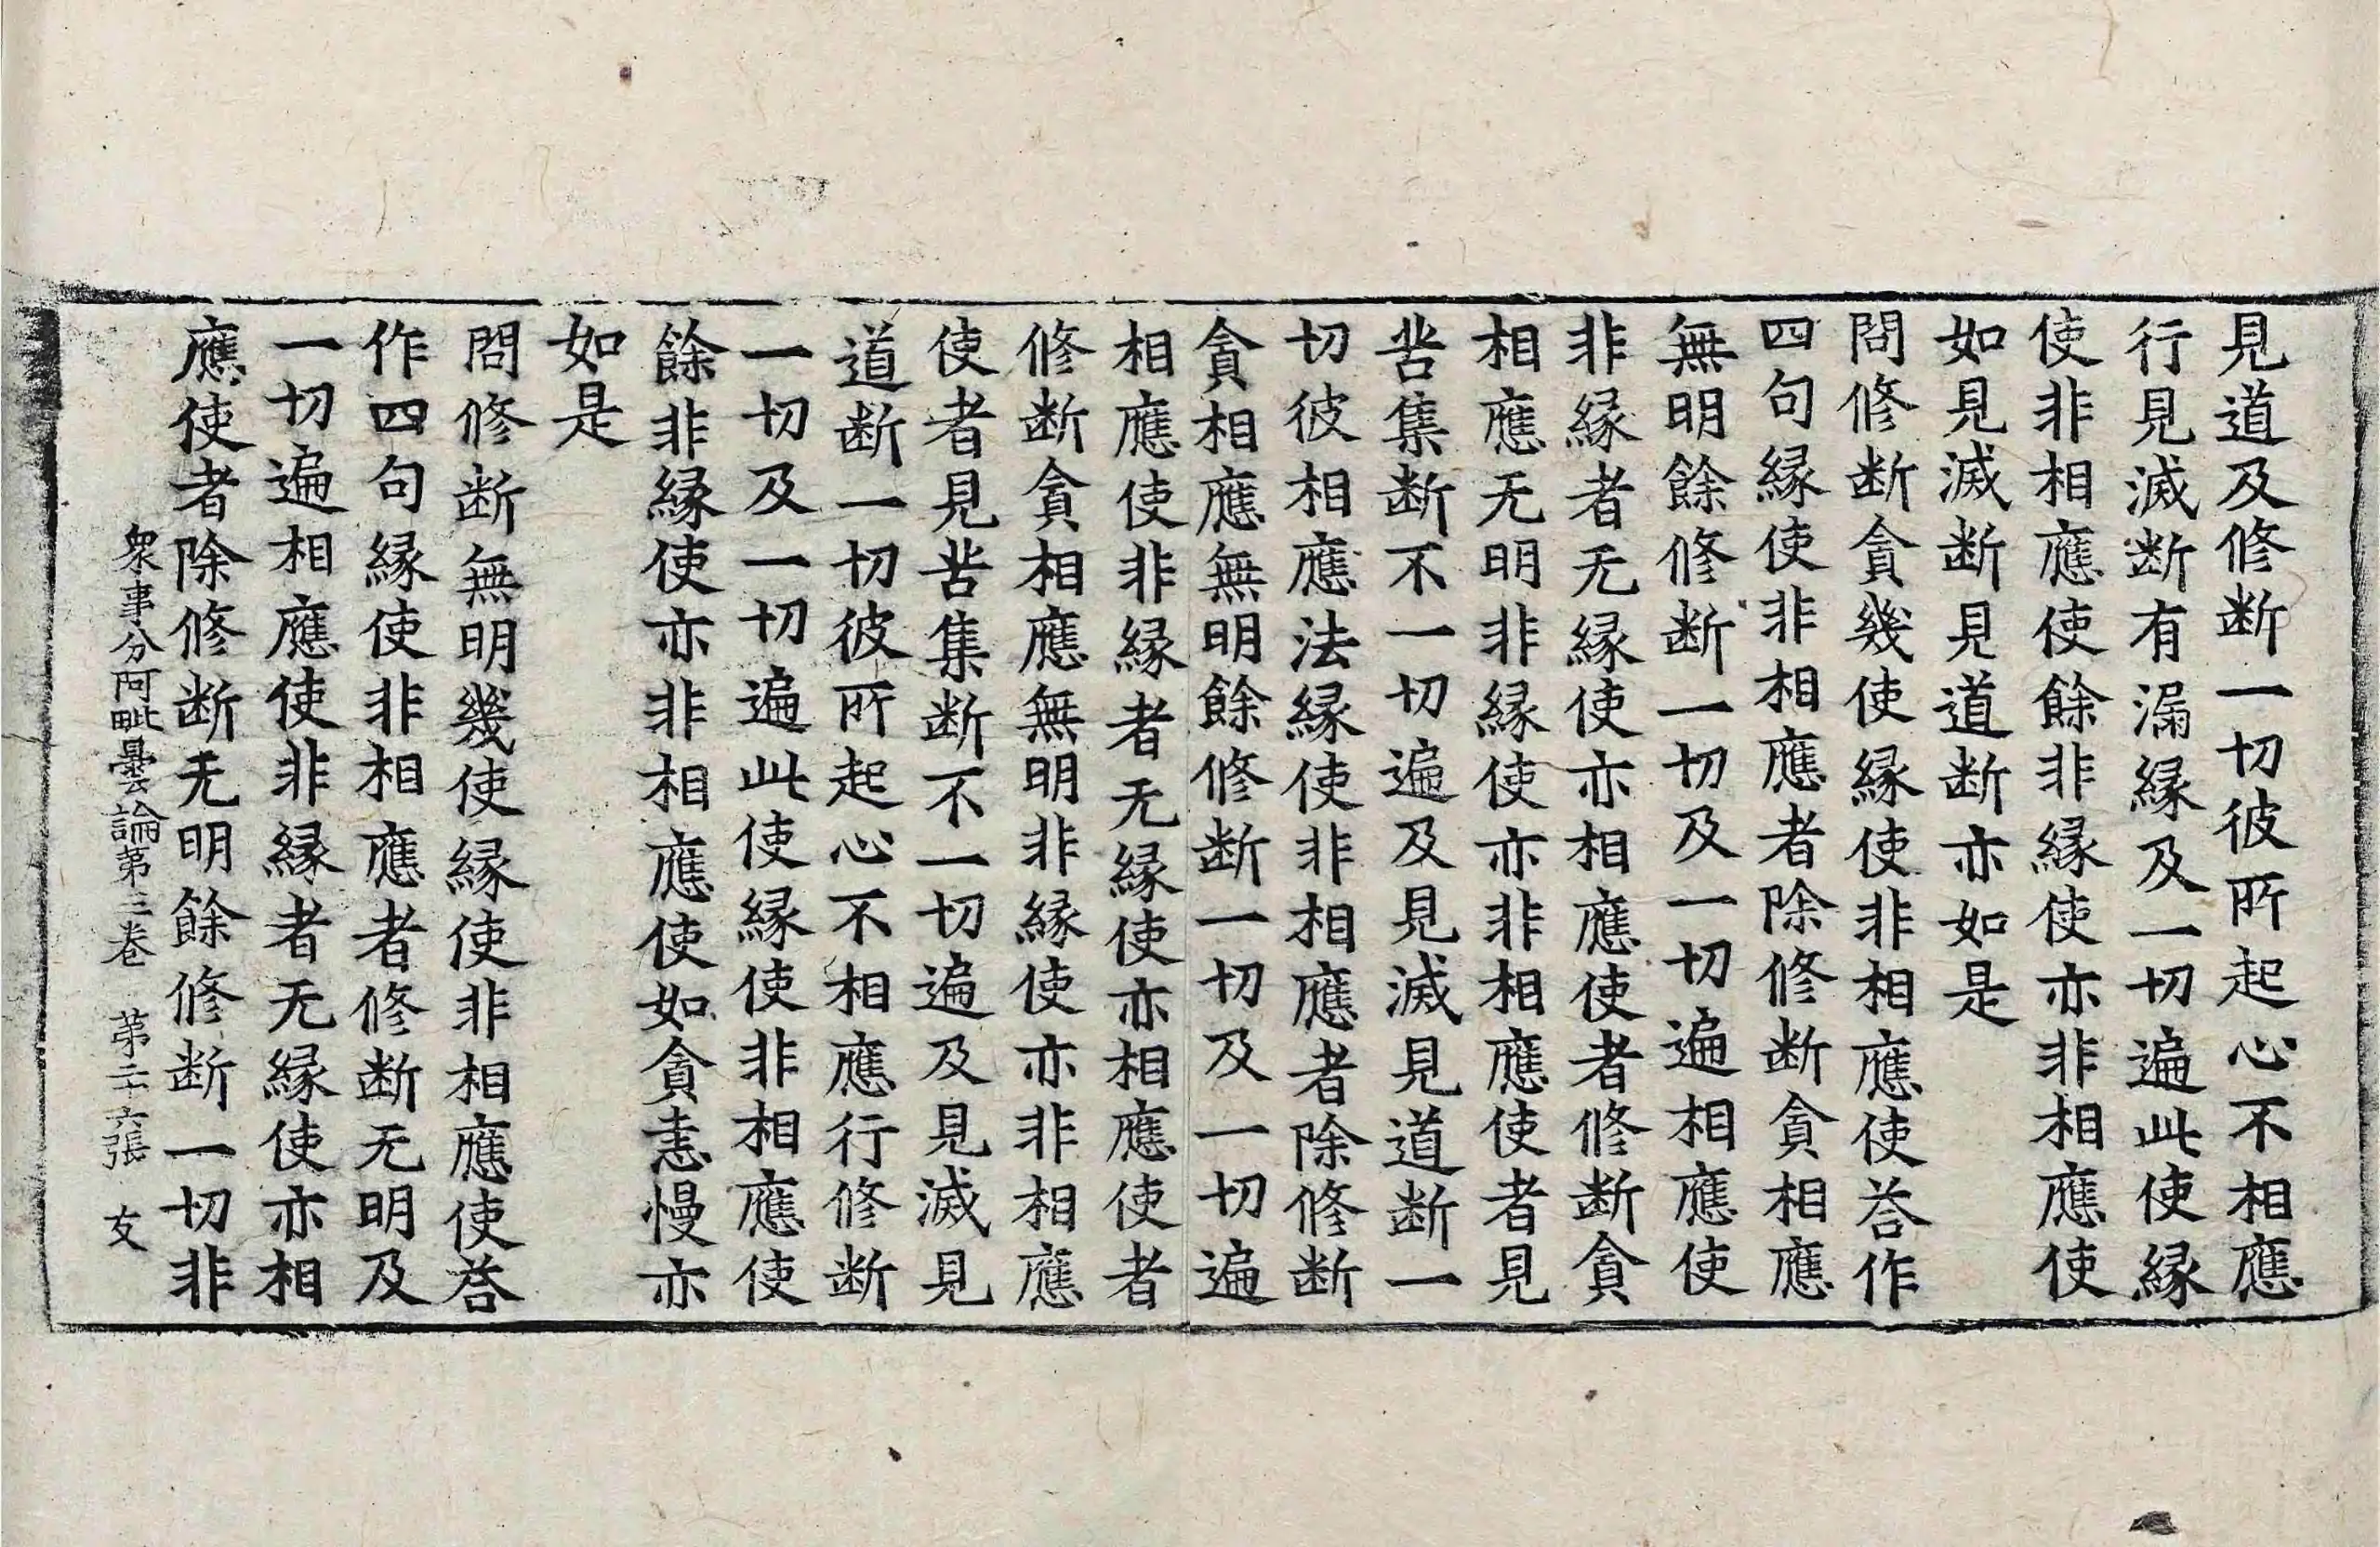 見道及修断一切彼所起心不相應
行見滅断有漏縁及一切遍此使縁
使非相應使餘非縁使亦非相應使
如見滅断見道断亦如是
問修断貪幾使縁使非相應使荅作
四句縁使非相應者除修断貪相應
無明餘修断一切及一切遍相應使
非縁者无縁使亦相應使者修断貪
相應无明非縁使亦非相應使者見
苦集断不一切遍及見滅見道断一
切彼相應法縁使非相應者除修断
貪相應無明餘修断一切及一切遍
相應使非縁者无縁使亦相應使者
修断貪相應無明非縁使亦非相應
使者見苦集断不一切遍及見滅見
道断一切彼所起心不相應行修断
一切及一切遍此使縁使非相應使
餘非縁使亦非相應使如貪恚慢亦
如是
問修断無明幾使縁使非相應使荅
作四句縁使非相應者修断无明及
一切遍相應使非縁者无縁使亦相
應使者除修断无明餘修断一切非
衆事分阿毗曇論第三卷 第二十六張 友